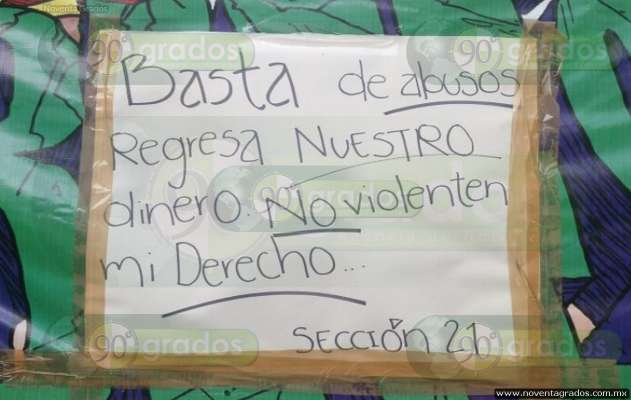 Noventa Grados
Basta de abusos
Regresa NUESTRO
dinero. No violenten
mi Derecho...
SECCIÓN 21
90° grados
90° grados
90° grados
90° grados
90° grados
www.noventagrados.com.mx